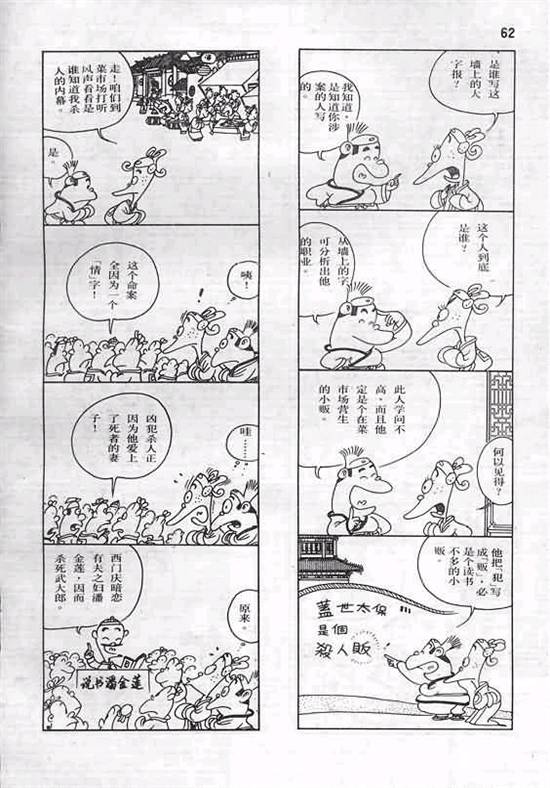 62
是谁写这
墙上的大
字报？
我知道，
是知道你涉
案的人写
的。
这个人到底
是谁？
从墙上的字
可分析出他
的职业。
此人学问不
高，而且他
定是个在菜
市场营生
的小贩。
何以见得？
他把「犯」写
成「贩」，必
是个读书
不多的小
贩。
蓋世太保
是個
殺人販
走！咱们到
菜市场打听
风声看看是
谁知道我杀
人的内幕。
是。
这个命案
全因为一个
「情」字！
咦！
凶犯杀人正
因为他爱上
了死者的妻
子！
哇……？
西门庆暗恋
有夫之妇潘
金莲，因而
杀死武大郎。
原来。
说书潘金莲